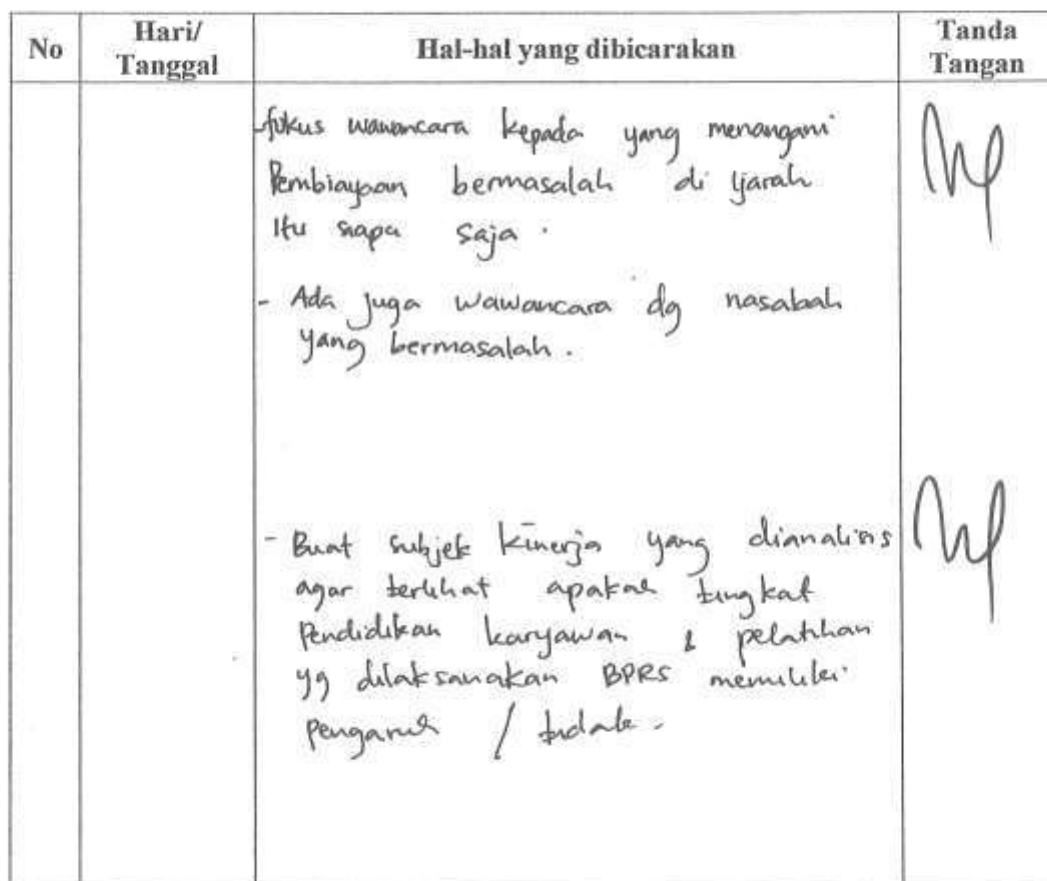 No
Hari/
Tanggal
Hal-hal yang dibicarakan
Tanda
Tangan
-fokus wawancara kepada yang menangani
Pembiayaan bermasalah di Ijarah
Itu siapa saja.
- Ada juga wawancara dg nasabah
yang bermasalah.
- Buat subjek kinerja yang dianalisis
agar terlihat apakah tingkat
Pendidikan karyawan & pelatihan
yg dilaksanakan BPRS memiliki
pengaruh / tidak.